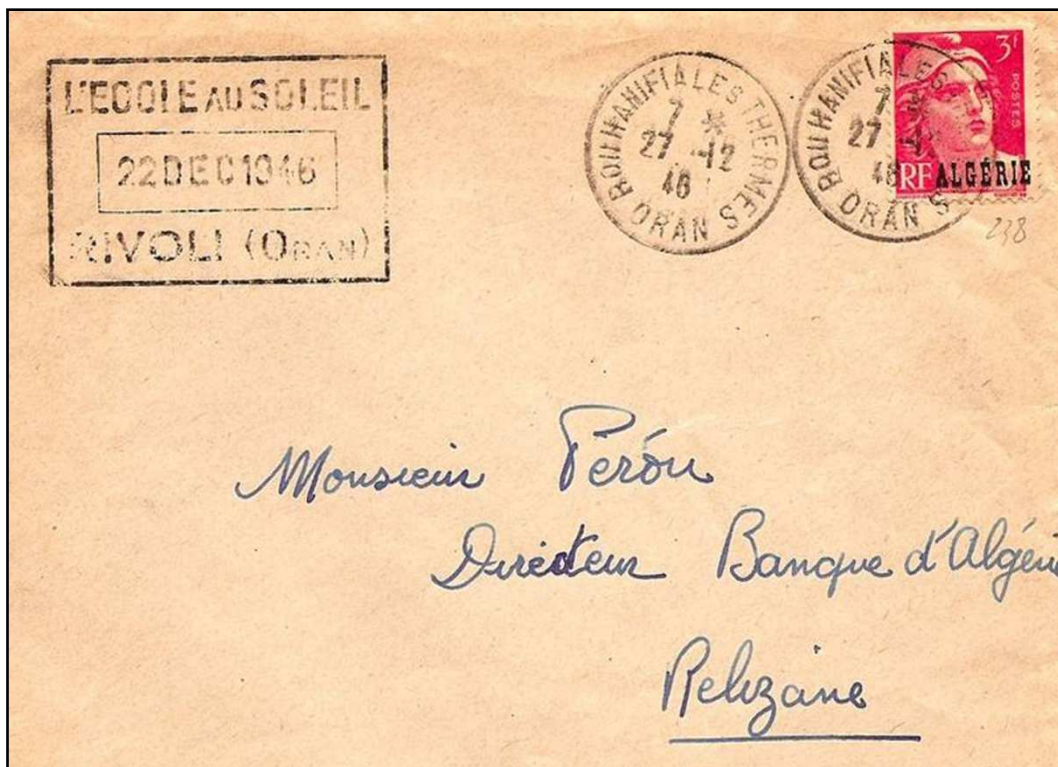 L'ECOLE AU SOLEIL
22 DEC 1946
RIVOLI (ORAN)
BOU HANIFIA LES THERMES
7 *
27 -12
46
ORAN
BOU HANIFIA LES
7
27 -12
46
ORAN
3f
POSTES
RF ALGÉRIE
238
Monsieur Péron
Directeur Banque d'Algérie
Relizane